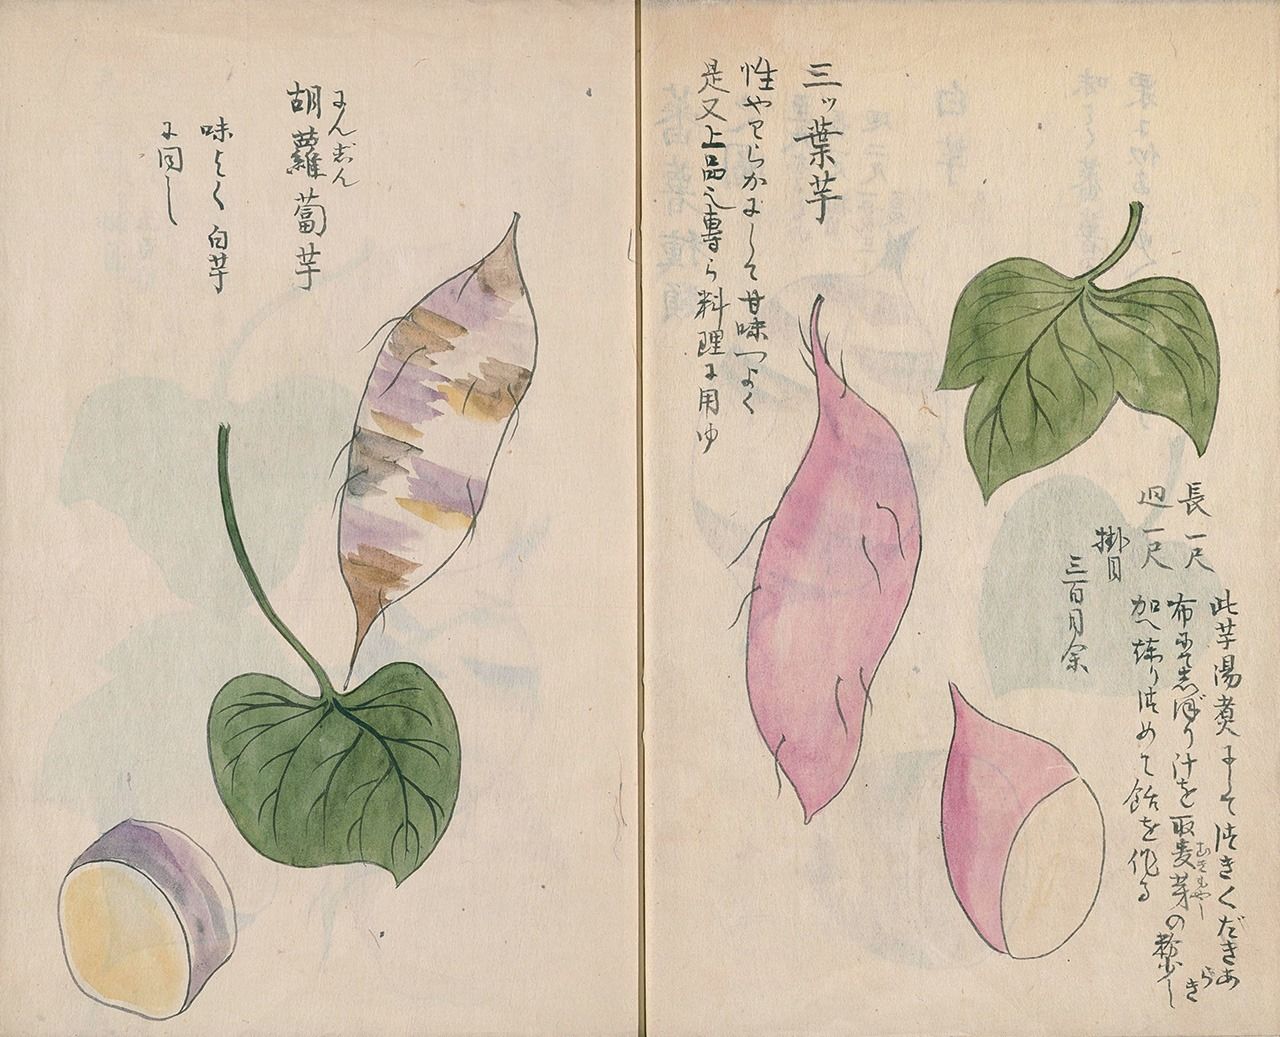 三ッ葉芋
性やわらかにして甘味つよく
是又上品也専ら料理に用ゆ
長一尺
廻一尺
掛目
三百目余
此芋湯煮にしてつきくだきあらき
布にてしぼり汁を取麦芽の粉少し
むぎもやし
加へ煉りつめて飴を作る
にんじん
胡蘿蔔芋
味よく白芋
に同し